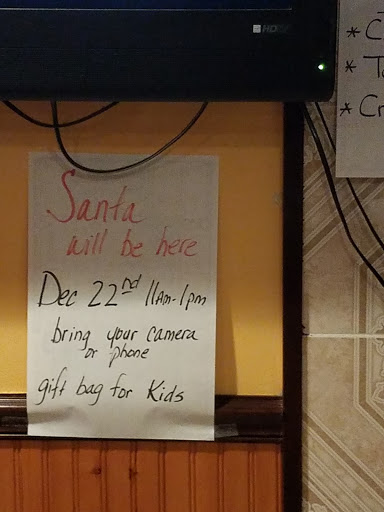 HD
* C
* T
* Cr
Santa
will be here
Dec 22nd 11Am-1pm
bring your camera
or phone
gift bag for Kids